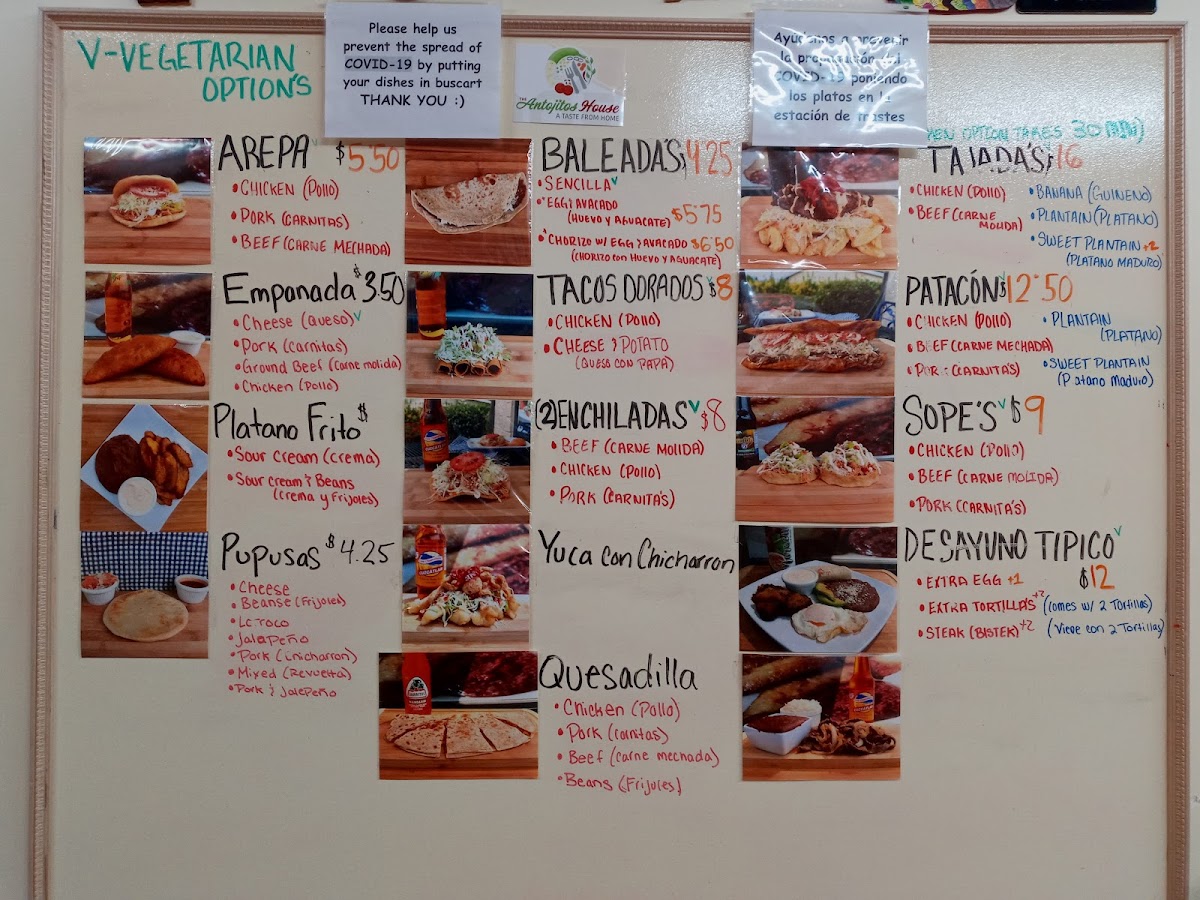 V-VEGETARIAN
OPTION'S
Please help us
prevent the spread of
COVID-19 by putting
your dishes in buscart
THANK YOU :)
THE
Antojitos House
A TASTE FROM HOME
Ayúdenos a prevenir
la propagación del
COVID-19 poniendo
los platos en la
estación de trastes
AREPA V $5.50
• CHICKEN (Pollo)
• PORK (CARNITAS)
• BEEF (CARNE MECHADA)
Empanada $3.50
• Cheese (Queso) V
• Pork (Carnitas)
• Ground Beef (Carne molida)
• Chicken (Pollo)
Platano Frito $
• Sour cream (Crema)
• Sour cream & Beans
(crema y frijoles)
Pupusas $4.25
• Cheese
• Beanse (Frijoles)
• Loroco
• Jalapeño
• Pork (Chicharron)
• Mixed (Revuelta)
• Pork & Jalepeño
BALEADA'S $4.25
• SENCILLA V
• EGG & AVACADO
(HUEVO Y AGUACATE) $5.75
• CHORIZO W/ EGG & AVACADO $6.50
(CHORITO con HUEVO Y AGUACATE)
TACOS DORADOS V $8
• CHICKEN (Pollo)
• CHEESE & POTATO
(QUESS CON PAPA)
(2) ENCHILADAS V $8
• BEEF (CARNE MOLIDA)
• CHICKEN (POLLO)
• PORK (CARNITA'S)
Yuca con Chicharron
Quesadilla
• Chicken (Pollo)
• Pork (carnitas)
• Beef (carne mechada)
• Beans (Frijoles)
OPTION TAKES 30
TAJADA'S $16
• CHICKEN (Pollo)
• BEEF (CARNE
MOLIDA)
• BANANA (GUINENO)
• PLANTAIN (PLATANO)
• SWEET PLANTAIN +2
(PLATANO MADURO)
PATACÓN V $12.50
• CHICKEN (Pollo)
• BEEF (CARNE MECHADA)
• PORK (CARNITA'S)
• PLANTAIN
(PLATANO)
• SWEET PLANTAIN
(Platano Maduro)
SOPE'S V $9
• CHICKEN (Pollo)
• BEEF (CARNE MOLIDA)
• PORK (CARNITA'S)
DESAYUNO TIPICO V
$12
• EXTRA EGG +1
• EXTRA TORTILLA'S +2 (comes w/ 2 Tortillas)
• STEAK (BISTEK) +2 (Viene con 2 Tortillas)